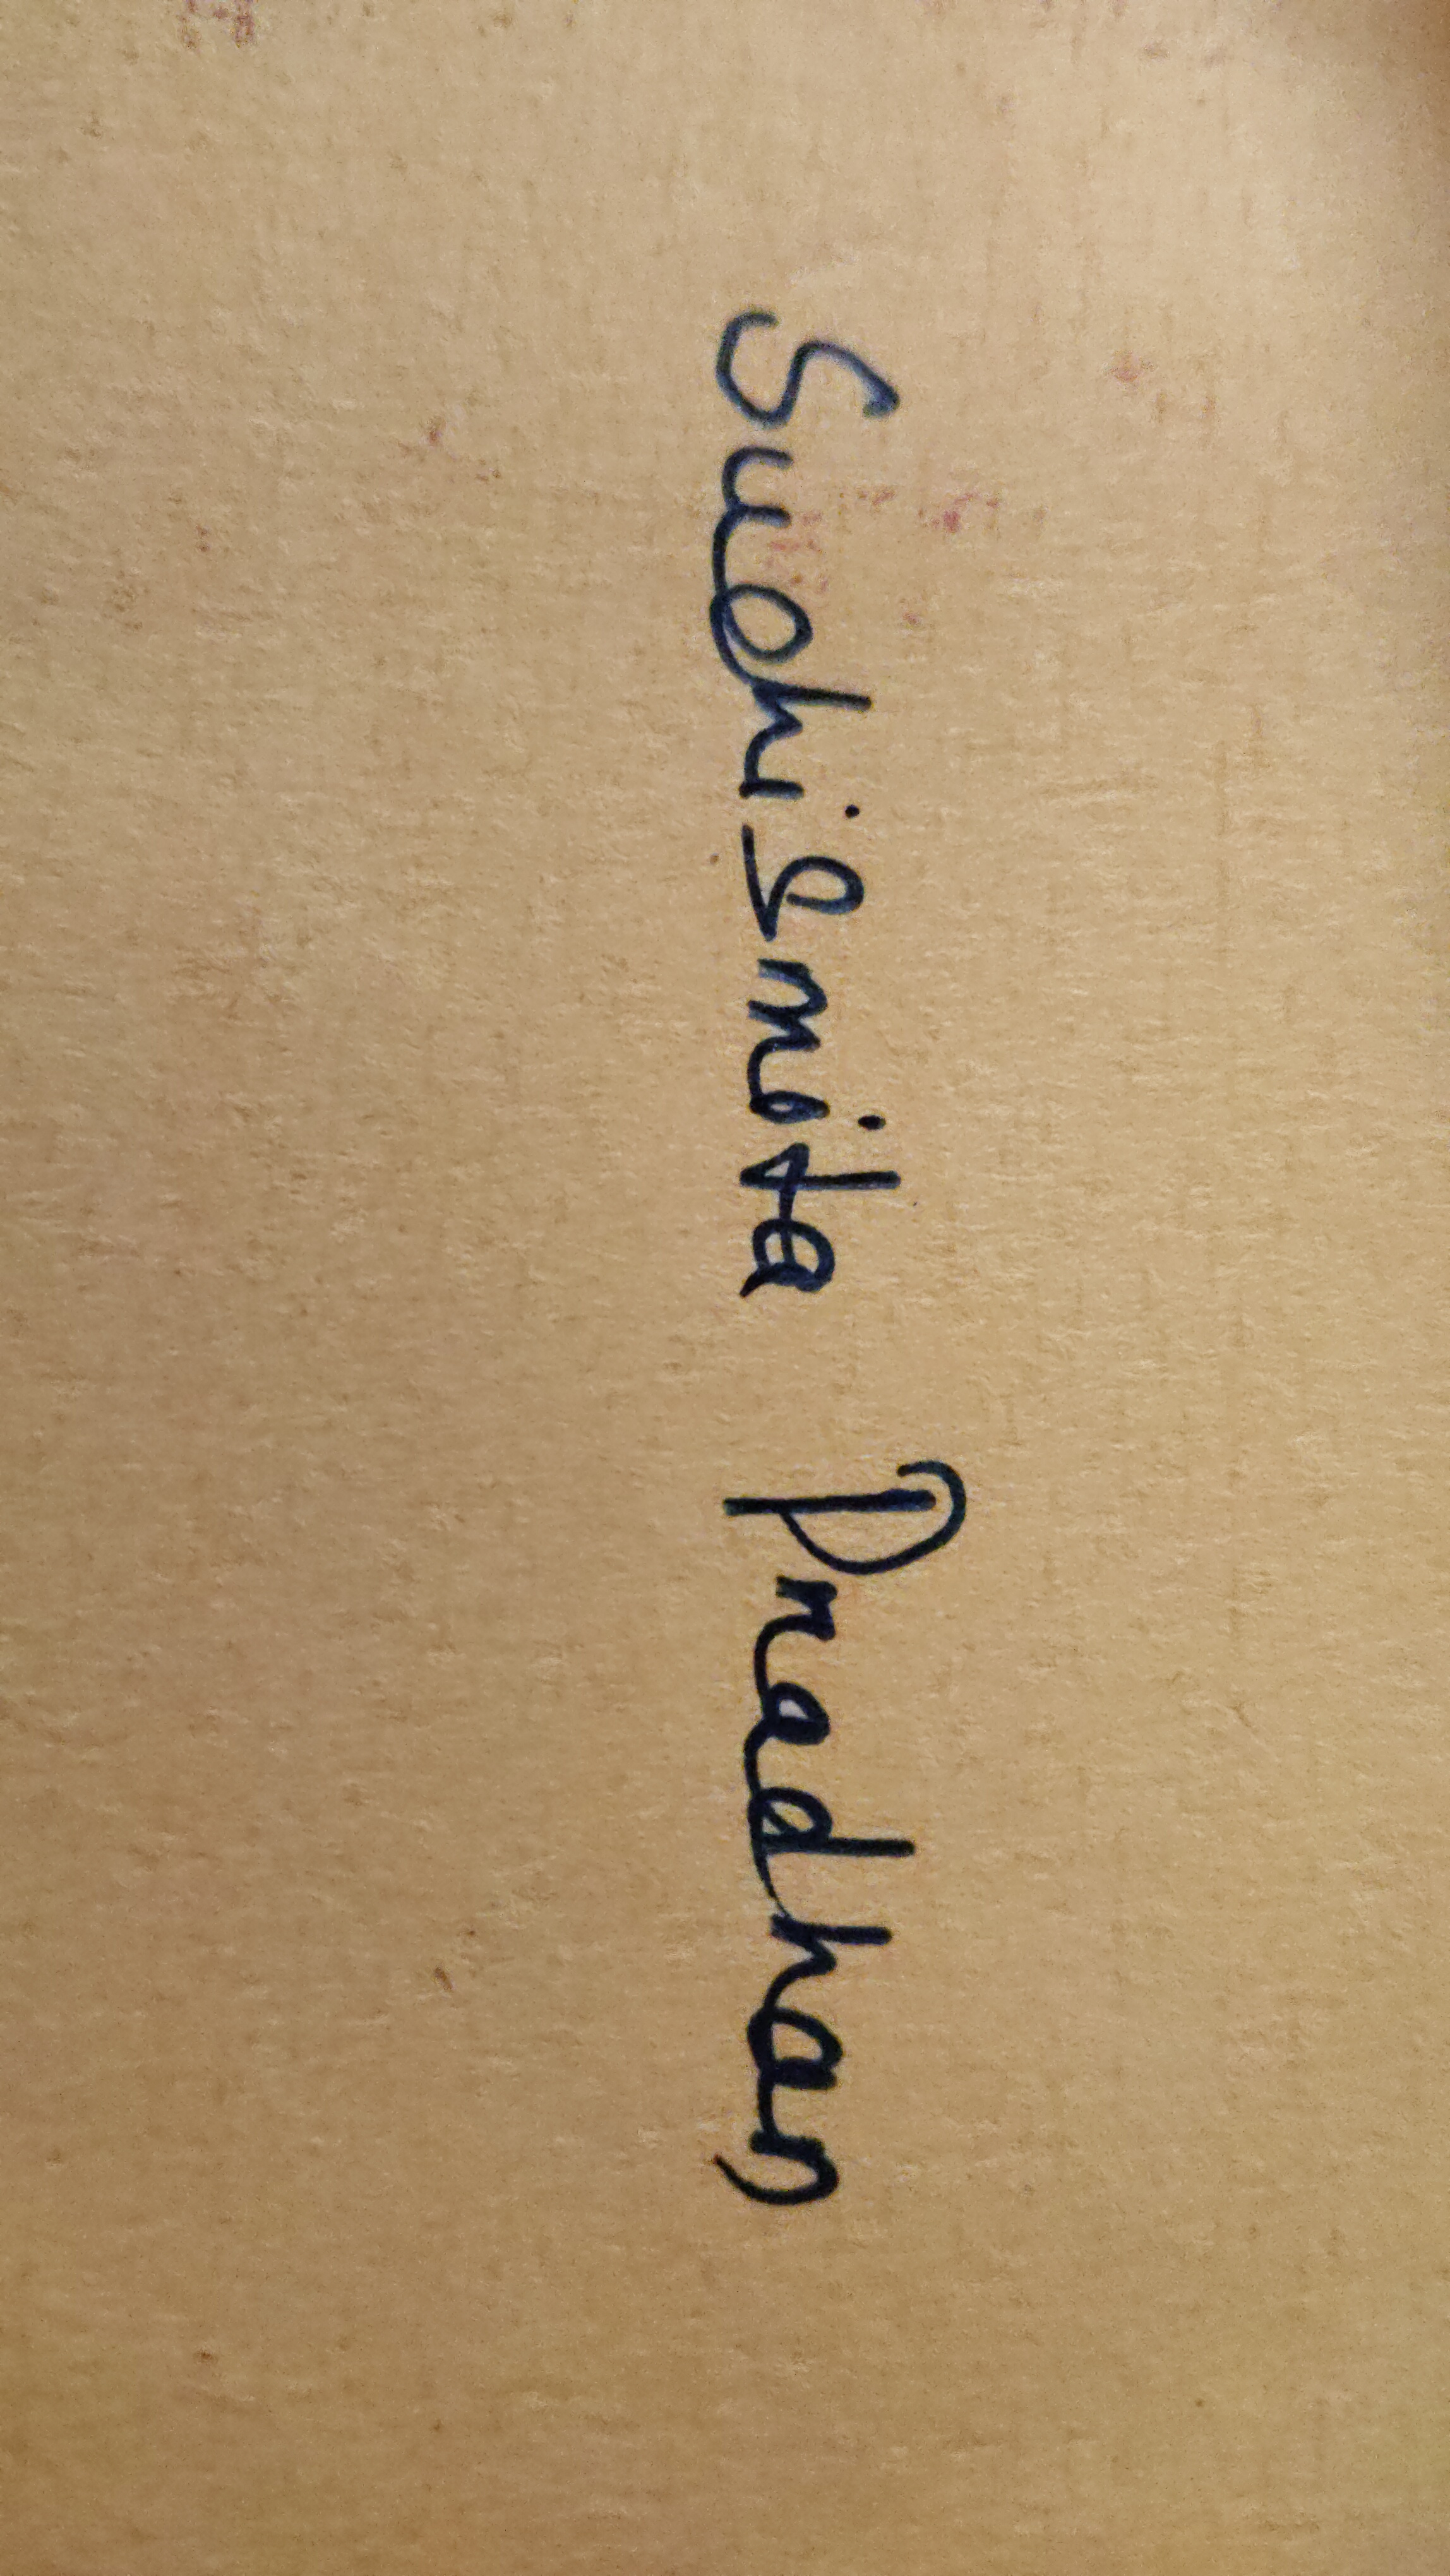 Suchismita Pradhan